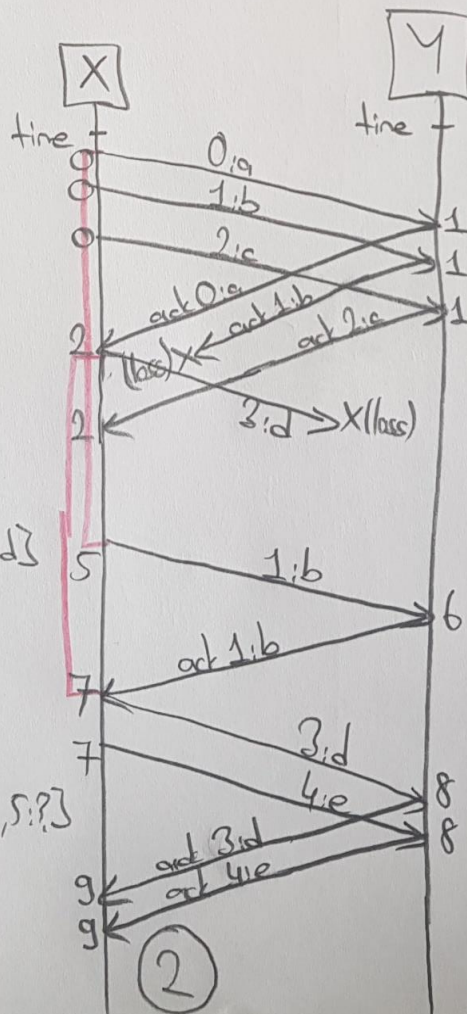 X Y
time time
0 0:a
0 1:b 1
0 2:c 1
1
ack 0:a ack 1:b ack 2:c
2 (loss)X
3:d X(loss)
2
d}
5 1:b
6
ack 1:b
7
3:d
7 4:e 8
,5:?}
ack 3:d 8
9 ack 4:e
9
2